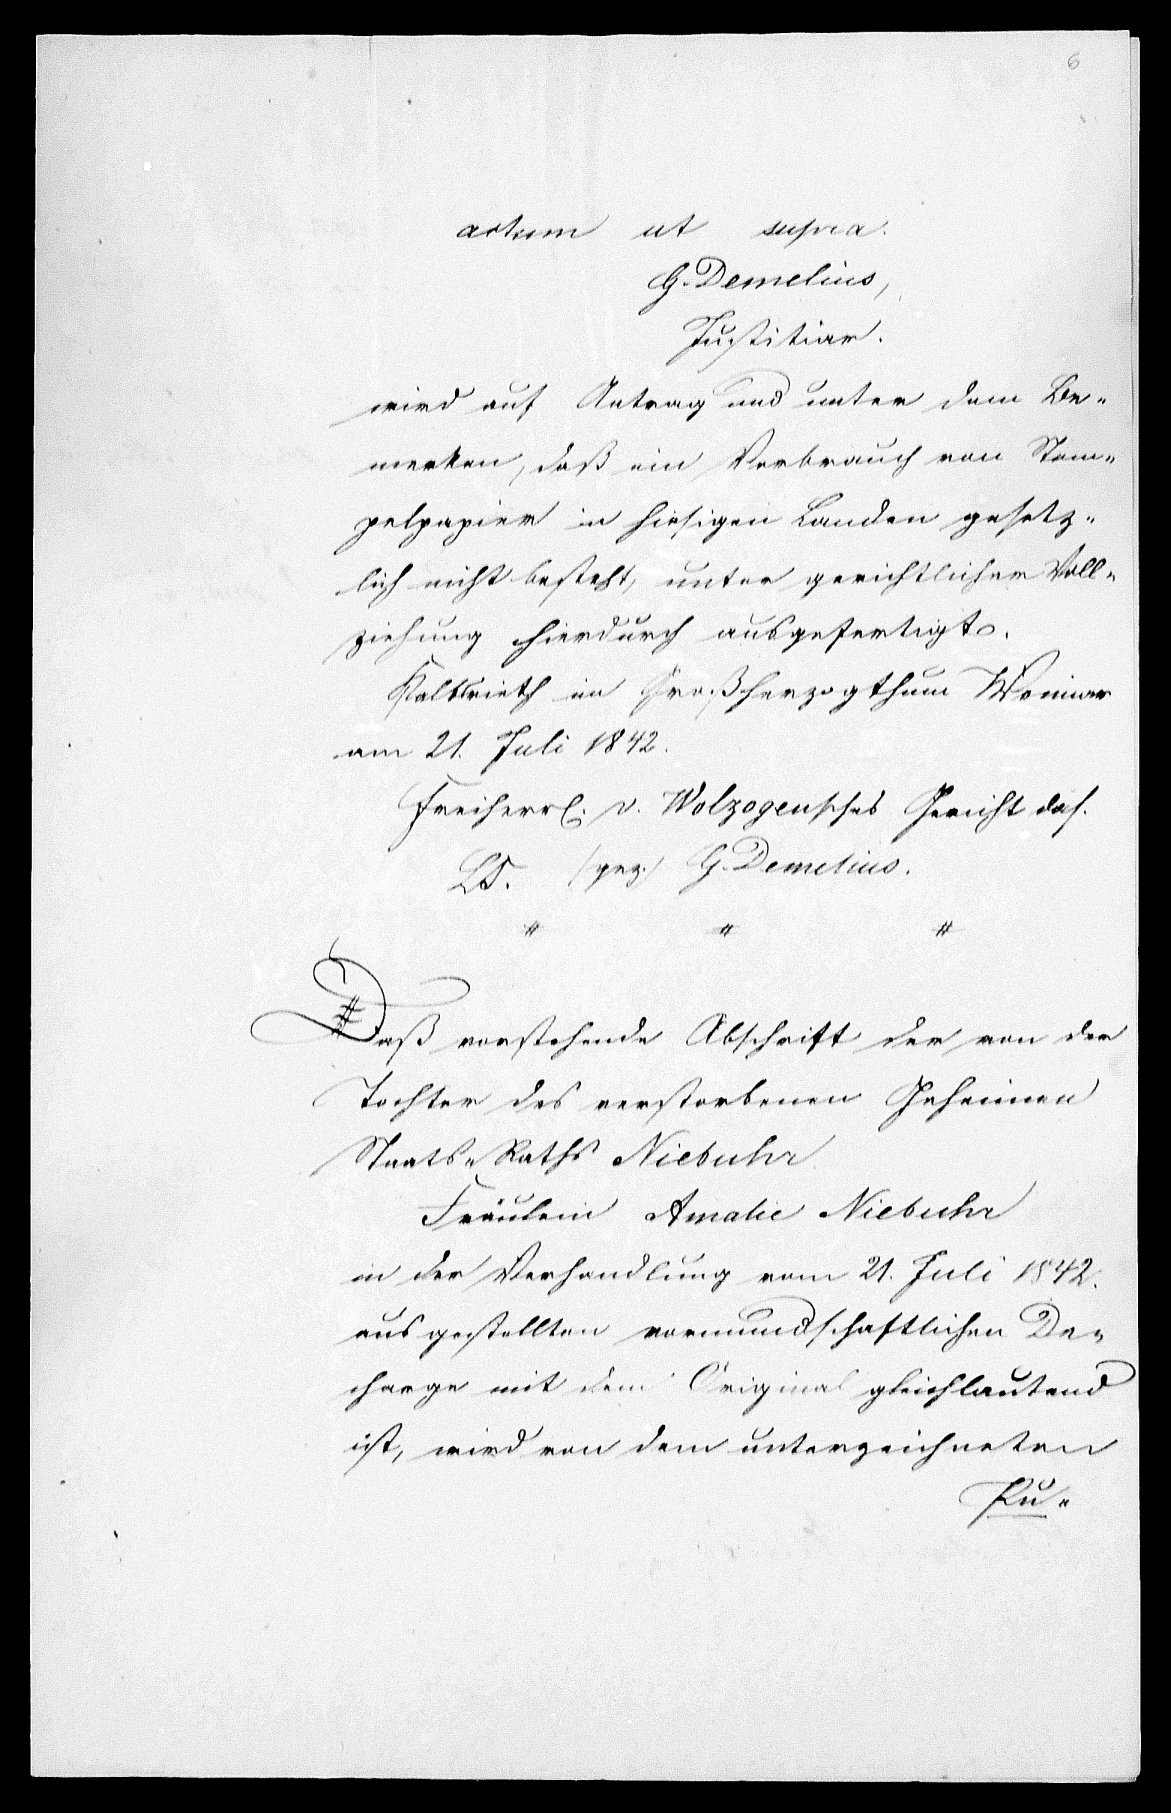 6
actum ut supra.
G. Demelius,
Justitiar.
wird auf Antrag und unter dem Be-
merken, daß ein Verbrauch von Stem-
pelpapier in hiesigen Landen gesetz-
lich nicht besteht, unter gerichtlicher Voll-
ziehung hierdurch ausgefertigt.
Kalbsrieth im Großherzogthum Weimar
am 21. Juli 1842.
Freiherrl. v. Wolzogensches Gericht das.
LS. (gez.) G. Demelius.
" " "
Daß vorstehende Abschrift der von der
Tochter des verstorbenen Geheimen
Staats-Raths Niebuhr
Fräulein Amalie Niebuhr
in der Verhandlung vom 21. Juli 1842.
ausgestellten vormundschaftlichen De-
charge mit dem Original gleichlautend
ist, wird von dem unterzeichneten